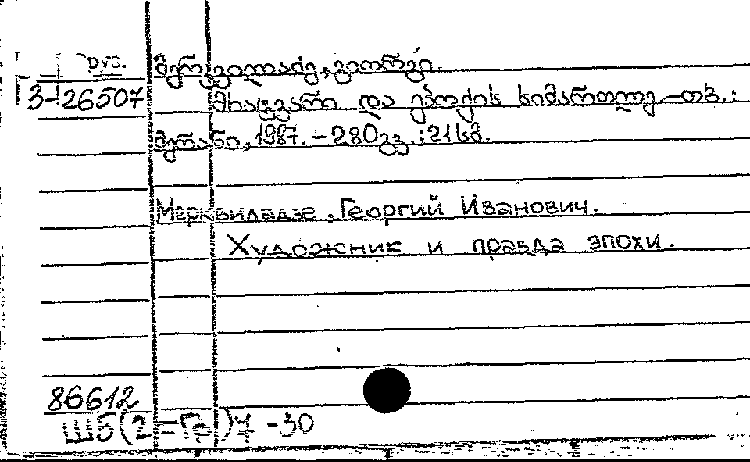 Груз.
Г3-26507
მერკვილაძე, გიორგი.
მხატვარი და ეპოქის სიმართლე. -თბ.:
მერანი, 1987. - 280გვ. ; 21სმ.
Мерквиладзе, Георгий Иванович.
Художник и правда эпохи.
86612
Ш5(2=Гр)7-30